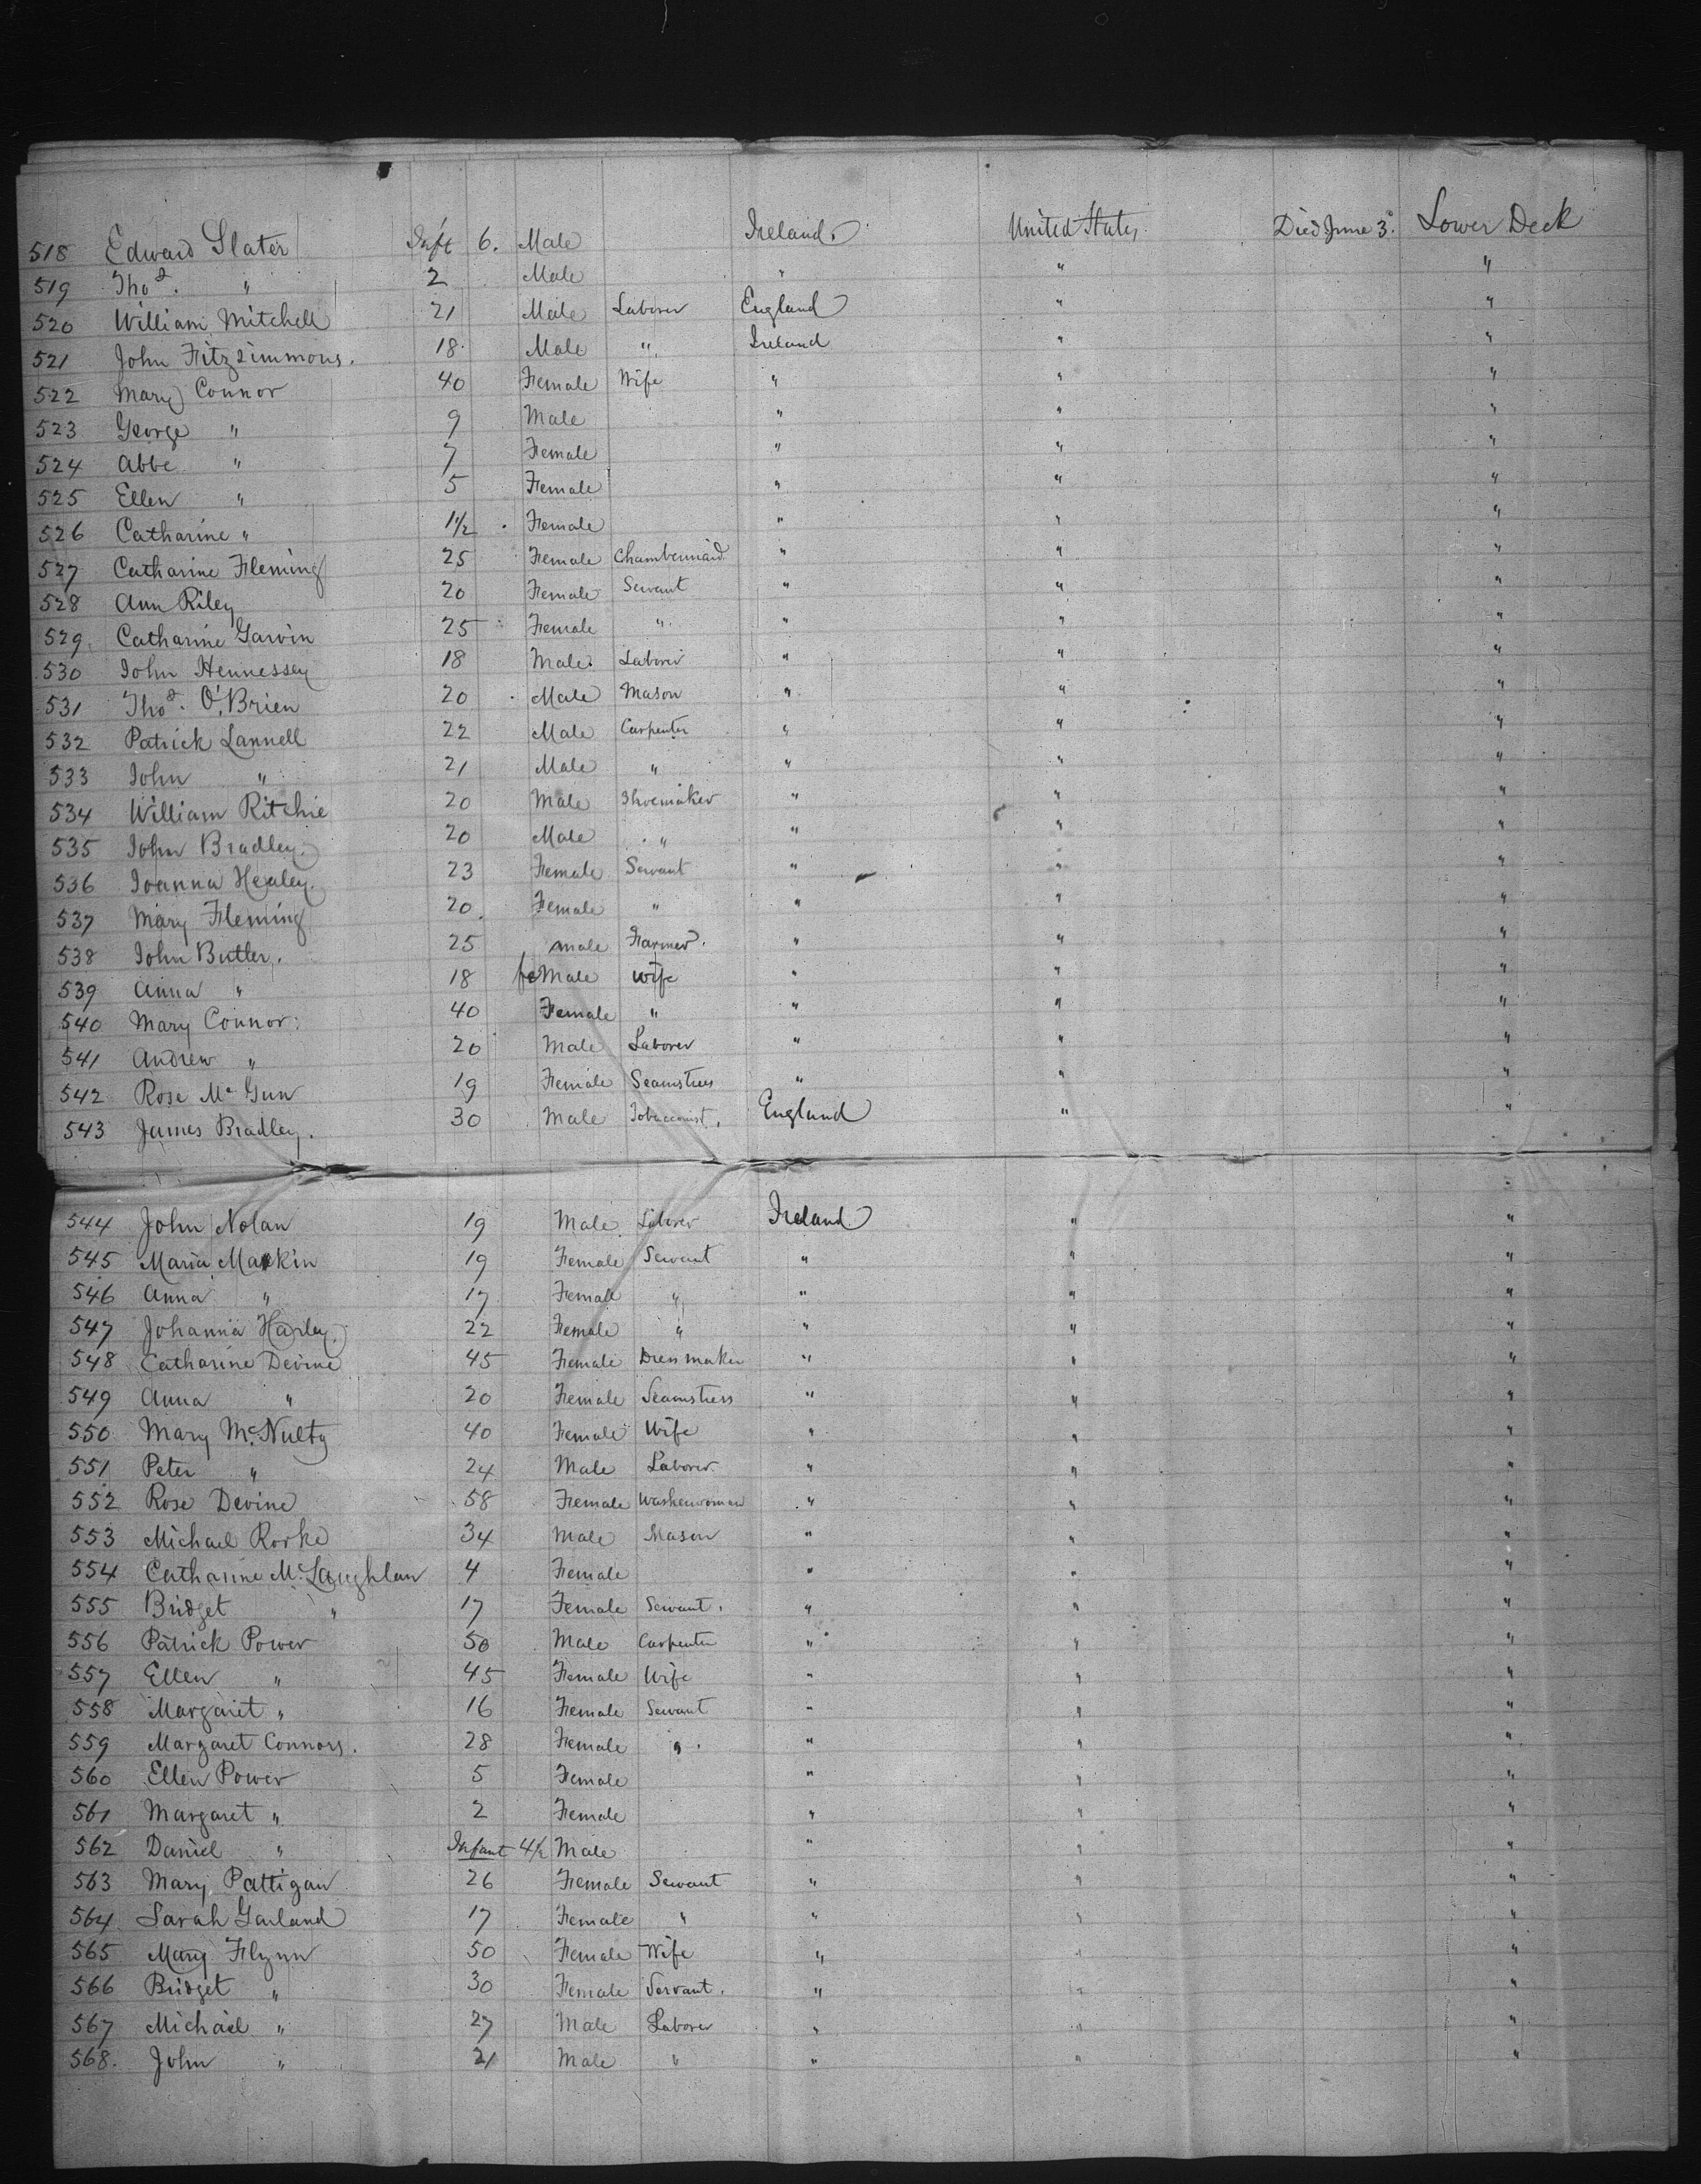 518 Edward Slater Inft 6. Male Ireland. United States Died June 3d. Lower Deck
519 Thos. " 2 Male " " "
520 William Mitchell 21 Male Laborer England " "
521 John Fitzsimmons. 18. Male " Ireland " "
522 Mary Connor 40 Female Wife " " "
523 George " 9 Male " " "
524 Abbe " 7 Female " " "
525 Ellen " 5 Female " " "
526 Catharine " 1 1/2 Female " " "
527 Catharine Fleming 25 Female Chambermaid " " "
528 Ann Riley 20 Female Servant " " "
529. Catharine Garvin 25 Female " " " "
530 John Hennessey 18 Male Laborer " " "
531 Thos. O'Brien 20 Male Mason " " "
532 Patrick Lannell 22 Male Carpenter " " "
533 John " 21 Male " " " "
534 William Ritchie 20 Male Shoemaker " " "
535 John Bradley. 20 Male " " " "
536 Joanna Healey. 23 Female Servant " " "
537 Mary Fleming 20 Female " " " "
538 John Butler. 25 male Farmer. " " "
539 Anna " 18 feMale wife " " "
540 Mary Connor. 40 Female " " " "
541 Andrew " 20 Male Laborer " " "
542 Rose Mc Gun 19 Female Seamstress " " "
543 James Bradley. 30 Male Tobacconist. England " "
544 John Nolan 19 Male Laborer Ireland " "
545 Maria Markin 19 Female Servant " " "
546 Anna " 17 Female " " " "
547 Johanna Harley. 22 Female " " " "
548 Catharine Devine 45 Female Dressmaker " " "
549 Anna " 20 Female Seamstress " " "
550 Mary McNulty 40 Female Wife " " "
551 Peter " 24 Male Laborer. " " "
552 Rose Devine 58 Female Washerwoman " " "
553 Michael Rorke 34 Male Mason " " "
554 Catharine McLaughlan 4 Female " " "
555 Bridget " 17 Female Servant. " " "
556 Patrick Power 50 Male Carpenter " " "
557 Ellen " 45 Female Wife " " "
558 Margaret " 16 Female Servant " " "
559 Margaret Connors. 28 Female " " " "
560 Ellen Power 5 Female " " "
561 Margaret " 2 Female " " "
562 Daniel " Infant 4/2 Male " " "
563 Mary Pattigan 26 Female Servant " " "
564 Sarah Garland 17 Female " " " "
565 Mary Flynn 50 Female Wife " " "
566 Bridget " 30 Female Servant. " " "
567 Michael " 27 Male Laborer " " "
568. John " 21 Male " " " "